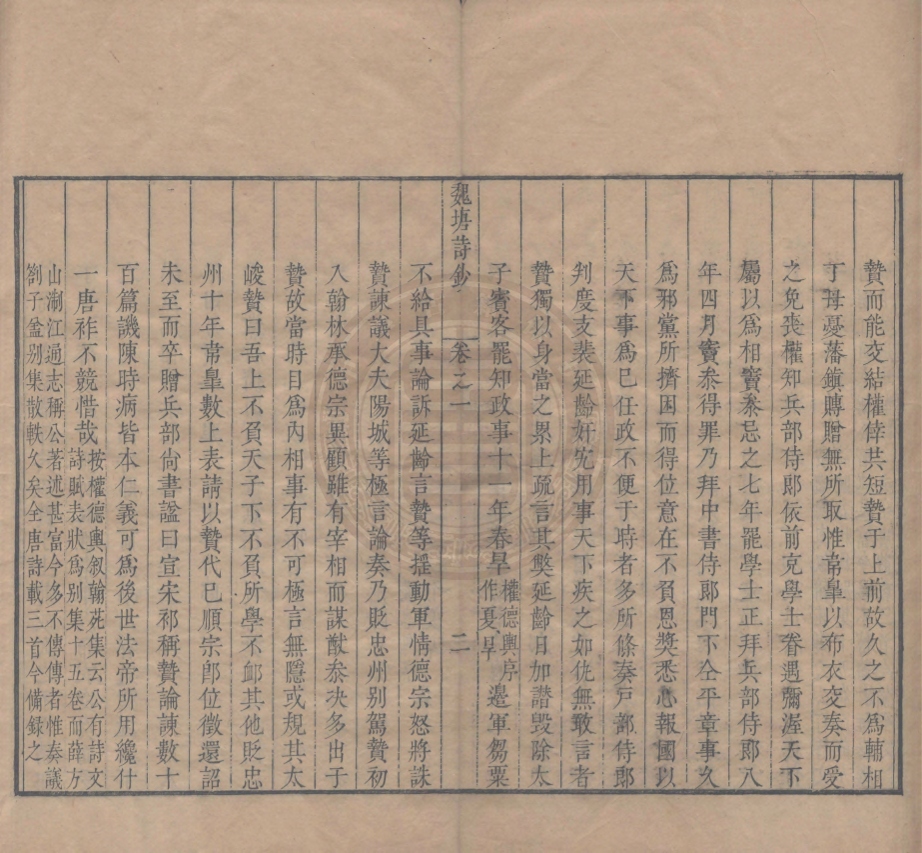 贄而能交結權倖共短贄于上前故久之不爲輔相
丁母憂藩鎮賻贈無所取惟韋臯以布衣交奏而受
之免喪權知兵部侍郎依前充學士眷遇彌渥天下
屬以爲相竇參忌之七年罷學士正拜兵部侍郎八
年四月竇叅得罪乃拜中書侍郎門下仝平章事久
爲邪黨所擠因而得位意在不負恩奬悉心報國以
天下事爲己任政不便于時者多所條奏戸部侍郎
判度支裴延齡奸宄用事天下疾之如仇無敢言者
贄獨以身當之累上疏言其獘延齡日加譖毀除太
子賓客罷知政事十一年春旱權德輿序作夏旱邊軍芻粟
魏塘詩鈔 卷之一 二
不給具事論訴延齡言贄等揺動軍情德宗怒將誅
贄諫議大夫陽城等極言論奏乃貶忠州别駕贄初
入翰林承德宗異顧雖有宰相而謀猷叅决多出于
贄故當時目爲内相事有不可極言無隱或規其太
峻贄曰吾上不負天子下不負所學不䘏其他貶忠
州十年韋臯數上表請以贄代已順宗卽位徵還詔
未至而卒贈兵部尚書諡曰宣宋祁稱贄論諫數十
百篇譏陳時病皆本仁義可爲後世法帝所用纔什
一唐祚不競惜哉按權德輿叙翰苑集云公有詩文詩賦表狀爲别集十五卷而薛方
山淛江通志稱公著述甚富今多不傳傳者惟奏議
劄子㿽别集散軼久矣全唐詩載三首今備録之